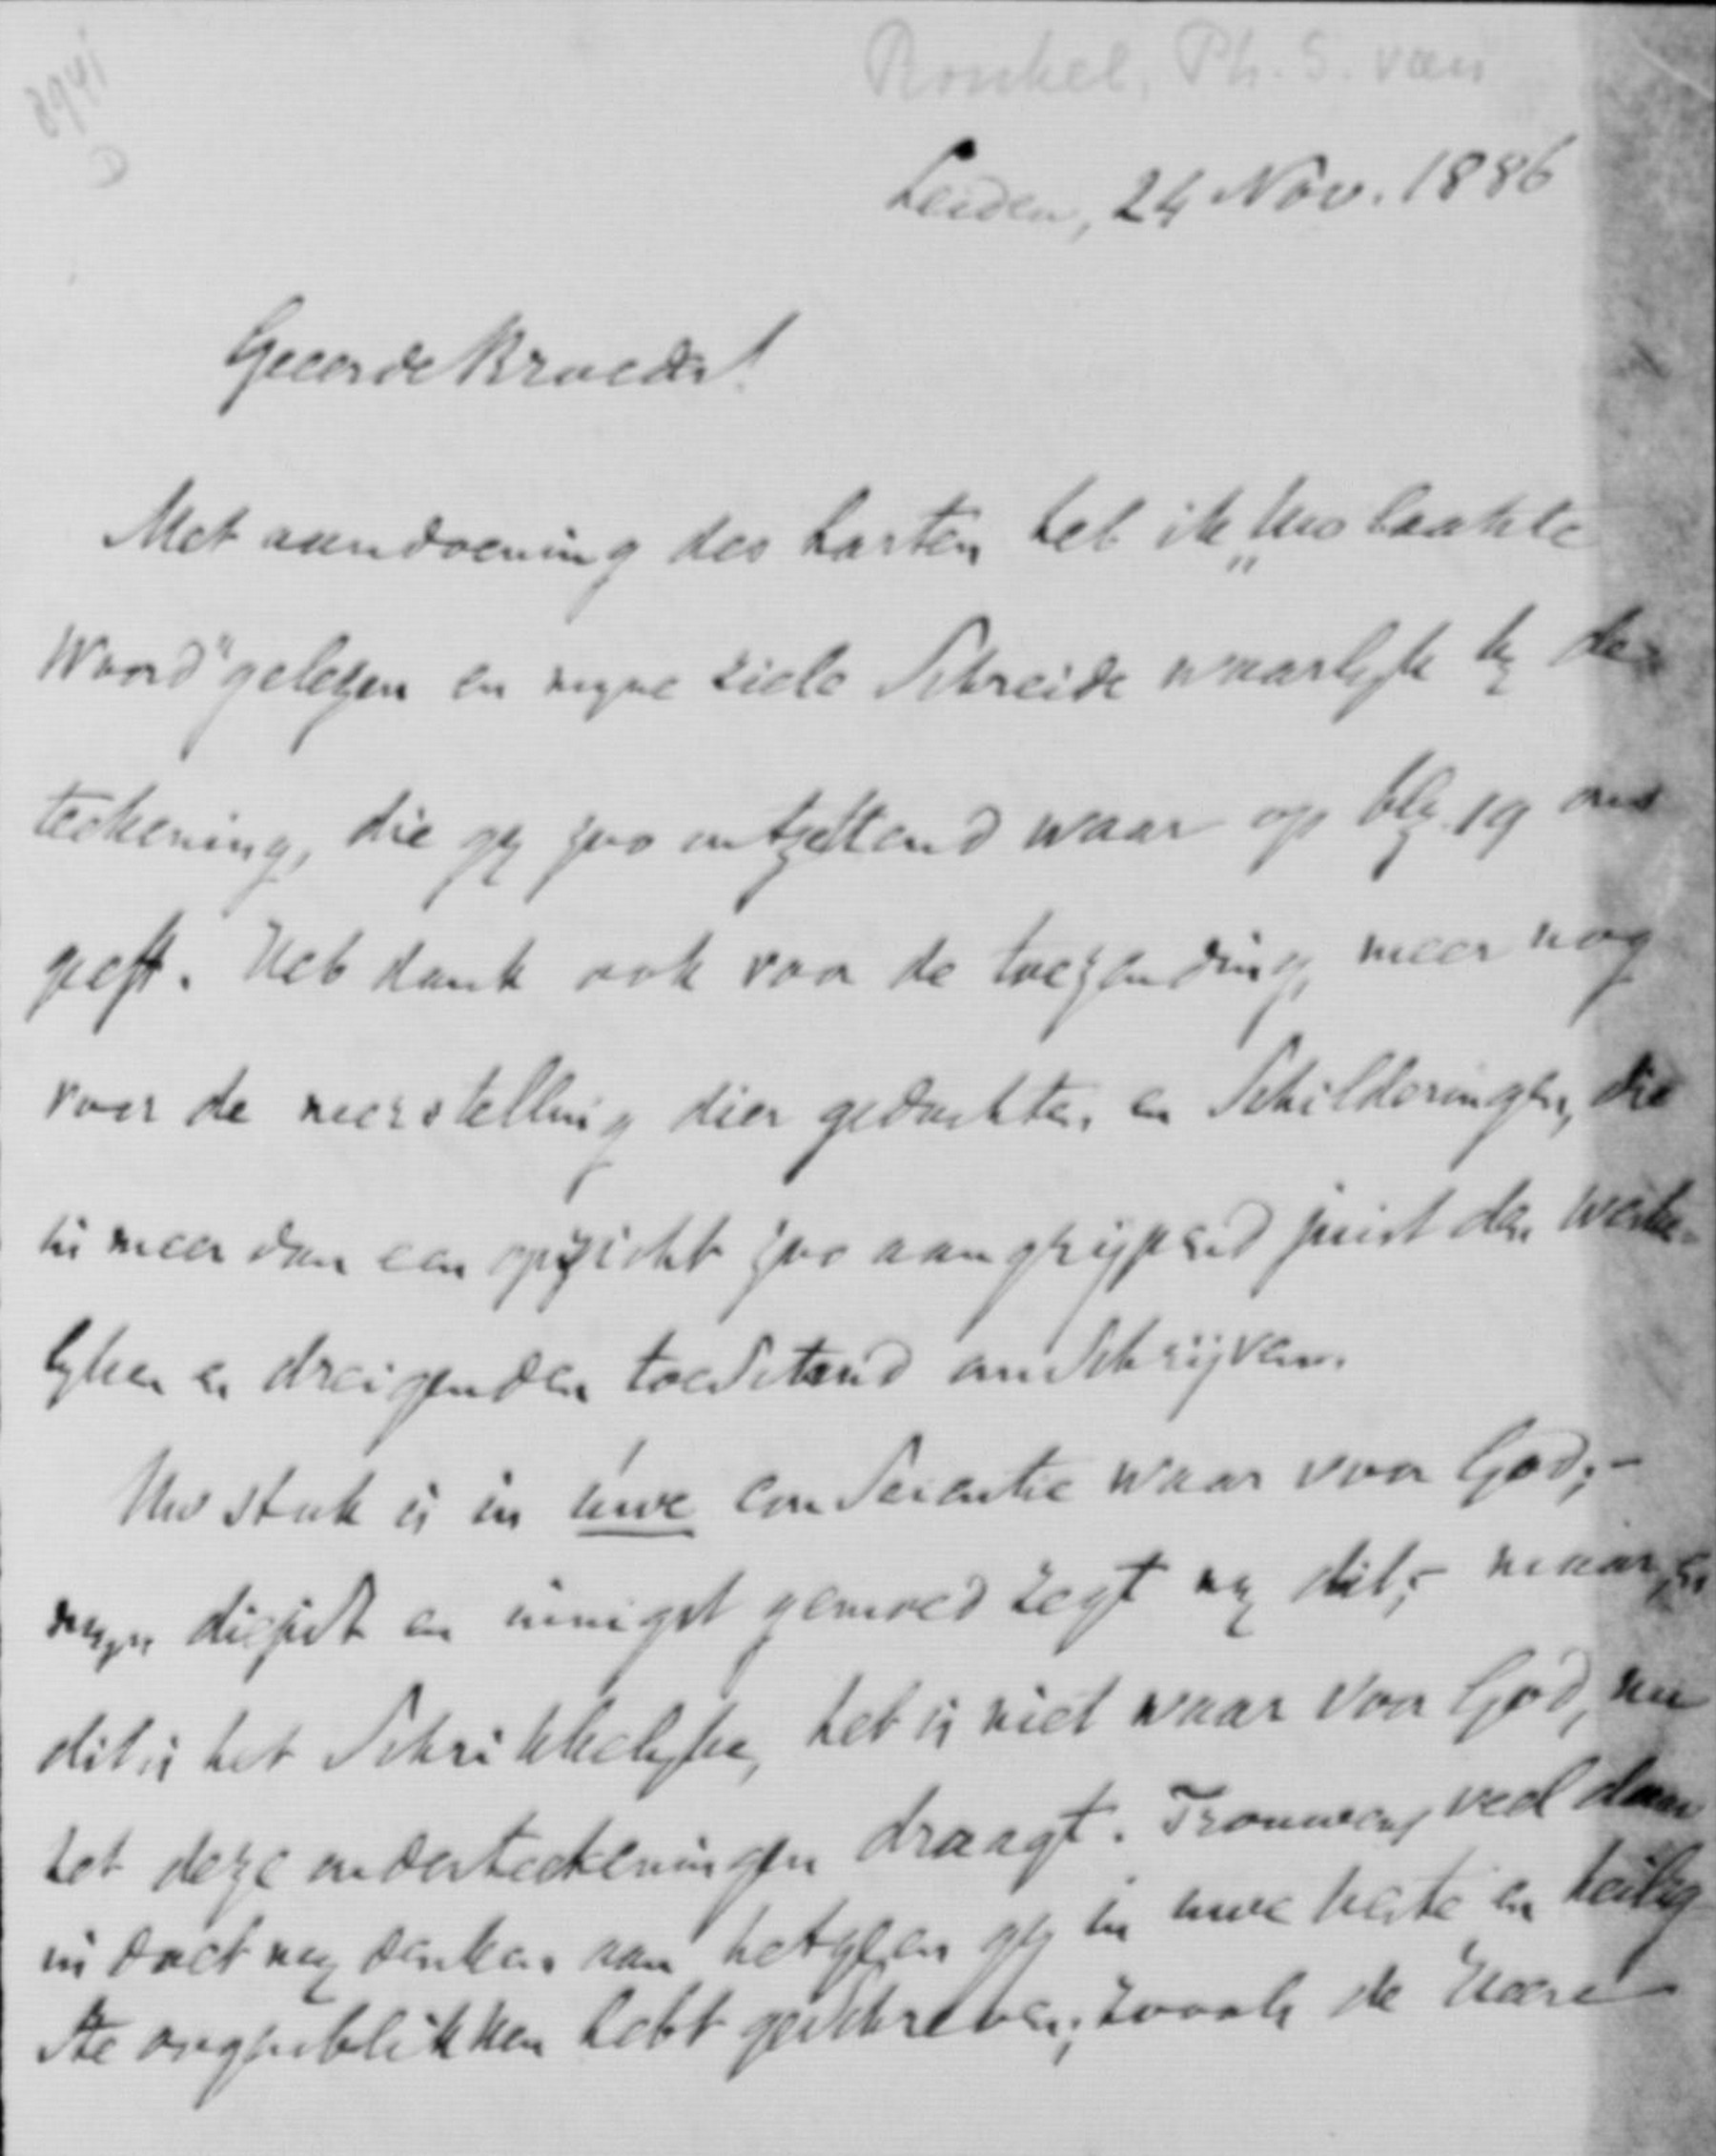 Ronkel, Ph. S. van
8941
D
Leiden, 24 Nov. 1886
Geeerde Broeder!
Met aandoening des harten heb ik „Uw laatste
Woord" gelezen en myne ziele Schreide waarlyk by de
teekening, die gy zoo ontzettend waar op blz 19 ons
geeft. Heb dank ook voor de toezending, meer nog
voor de neerstelling dier gedachten en Schilderingen, die
in meer dan een opzicht zoo aangrijpend juist den werke-
lyken en dreigenden toeStand omSchrijven.
Uw stuk is in úwe conScientie waar voor God; -
myn diepst en innigst gemoed zegt my dit; - maar, en
dit is het Schrikkelyke, het is niet waar voor God, nu
het deze onderteekeningen draagt. Trouwens veel daar
in doet my denken aan hetgeen gy in uwe beste en heilig
ste oogenblikken hebt geSchreven; zooals de Heere